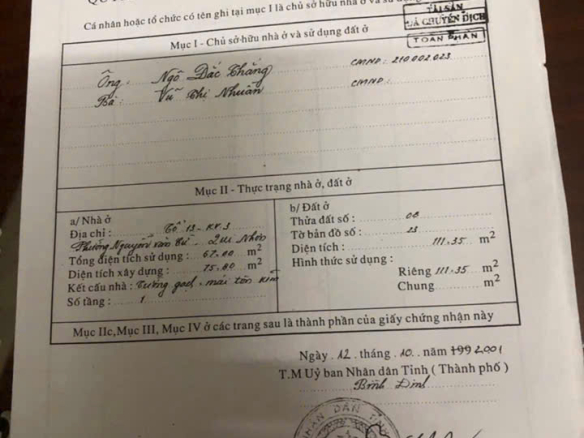 Cá nhân hoặc tổ chức có tên ghi tại mục I là chủ sở hữu nhà ở và sử dụng đất ở
TÀI SẢN
ĐÃ CHUYỂN DỊCH
TOÀN PHẦN
Mục I - Chủ sở hữu nhà ở và sử dụng đất ở
Ông: Ngô Đắc Thắng CMND: 210002023
Bà: Vũ Thị Nhuần CMND:
Mục II - Thực trạng nhà ở, đất ở
a/ Nhà ở
Địa chỉ: Tổ 13 - KV.3
Phường Nguyễn Văn Cừ - Qui Nhơn
Tổng diện tích sử dụng: 67.00 m2
Diện tích xây dựng: 75.00 m2
Kết cấu nhà: Tường gạch, mái tôn
Số tầng: 1
b/ Đất ở
Thửa đất số: 08
Tờ bản đồ số: 23
Diện tích: 111.35 m2
Hình thức sử dụng:
Riêng 111.35 m2
Chung m2
Mục IIc, Mục III, Mục IV ở các trang sau là thành phần của giấy chứng nhận này
Ngày. 12 . tháng . 10 . năm 199 2001
T.M Uỷ ban Nhân dân Tỉnh ( Thành phố )
Bình Định